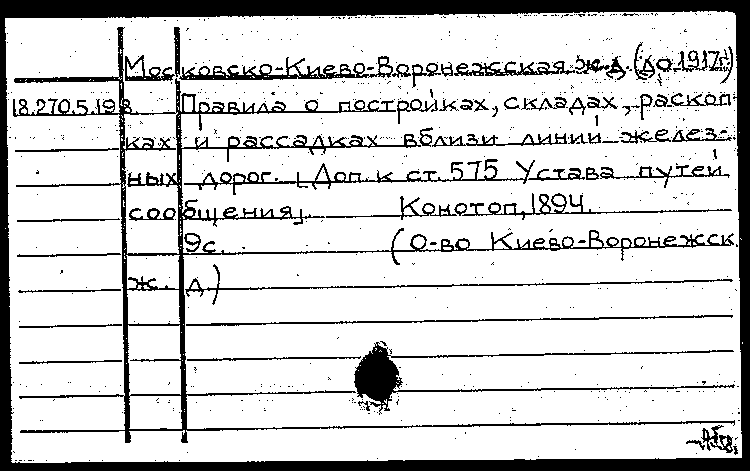 Московско-Киево-Воронежская ж.д. (до 1917г.)
18.270.5.198. Правила о постройках, складах, раскоп
ках и рассадках вблизи линий желез-
ных дорог. [Доп. к ст. 575 Устава путей
сообщения]. Конотоп, 1894.
9с. (О-во Киево-Воронежск.
ж. д.)